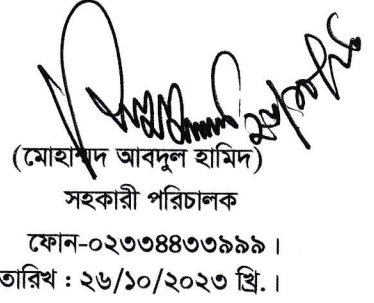 (মোহাম্মদ আবদুল হামিদ)
সহকারী পরিচালক
ফোন-০২৩৩৪৪৩৩৯৯৯।
তারিখ : ২৬/১০/২০২৩ খ্রি.।